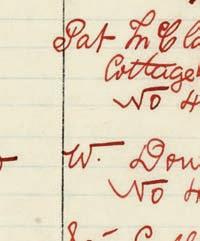 Pat McCla
Cottage
No H
W. Dow
No H